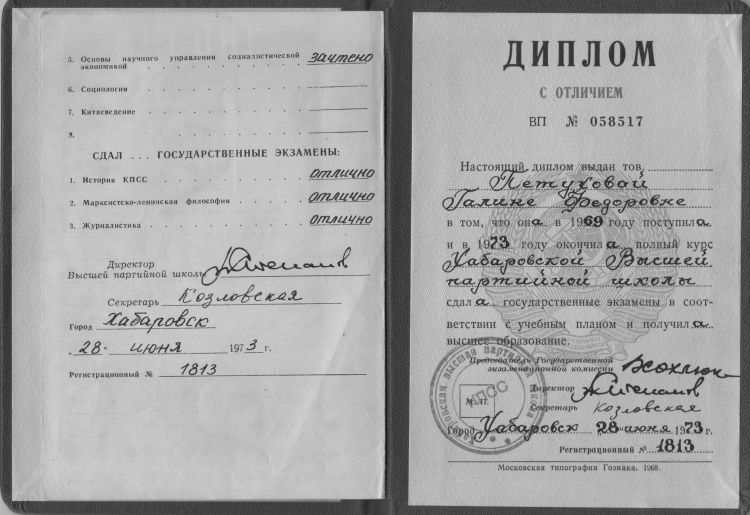 5. Основы научного управления социалистической
экономикой . . . . . . . . . зачтено
6. Социология . . . . . . . . .
7. Китаеведение . . . . . . . . .
8. . . . . . . . . .
СДАЛ ... ГОСУДАРСТВЕННЫЕ ЭКЗАМЕНЫ:
1. История КПСС . . . . . . отлично
2. Марксистско-ленинская философия . . . . отлично
3. Журналистика . . . . . . отлично
Директор
Высшей партийной школы
Секретарь Козловская
Город Хабаровск
28 июня 1973 г.
Регистрационный № 1813
ДИПЛОМ
С ОТЛИЧИЕМ
ВП № 058517
Настоящий диплом выдан тов.
Петуховой
Галине Федоровне
в том, что она в 1969 году поступила
и в 1973 году окончила полный курс
Хабаровской Высшей
партийной школы
сдала государственные экзамены в соот-
ветствии с учебным планом и получила
высшее образование.
Председатель Государственной
экзаменационной комиссии
Директор
М. П.
Секретарь Козловская
Город Хабаровск 28 июня 1973 г.
Регистрационный № 1813
Московская типография Гознака. 1968.
Хабаровская высшая партийная школа
КПСС